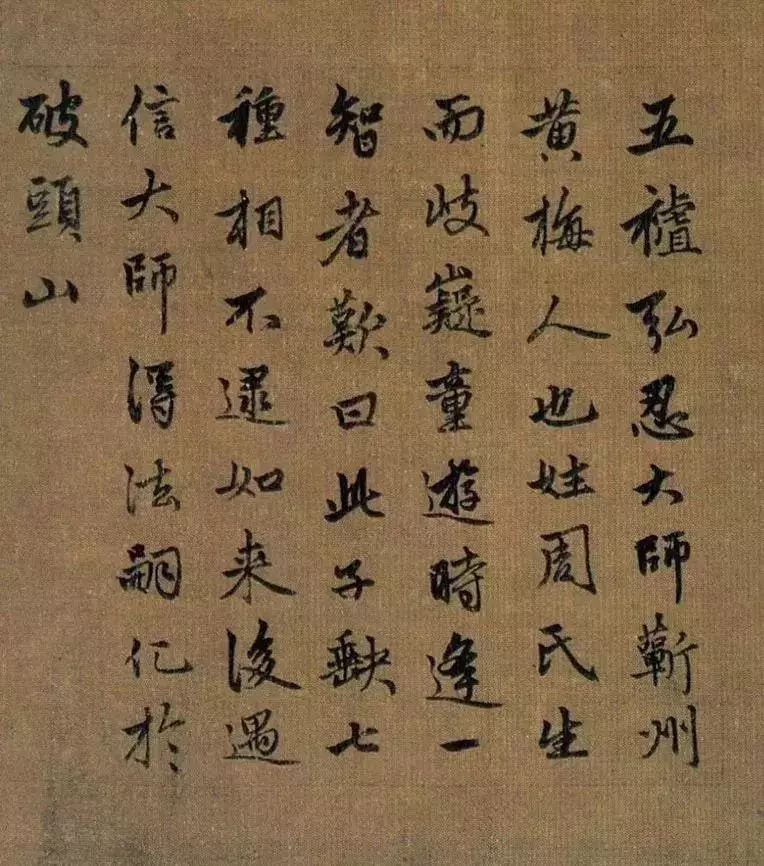 五襠弘忍大師蘄州
黄梅人也姓周氏生
而岐嶷童遊時逢一
智者歎曰此子缺七
種相不逮如来後遇
信大師得法嗣化於
破頭山